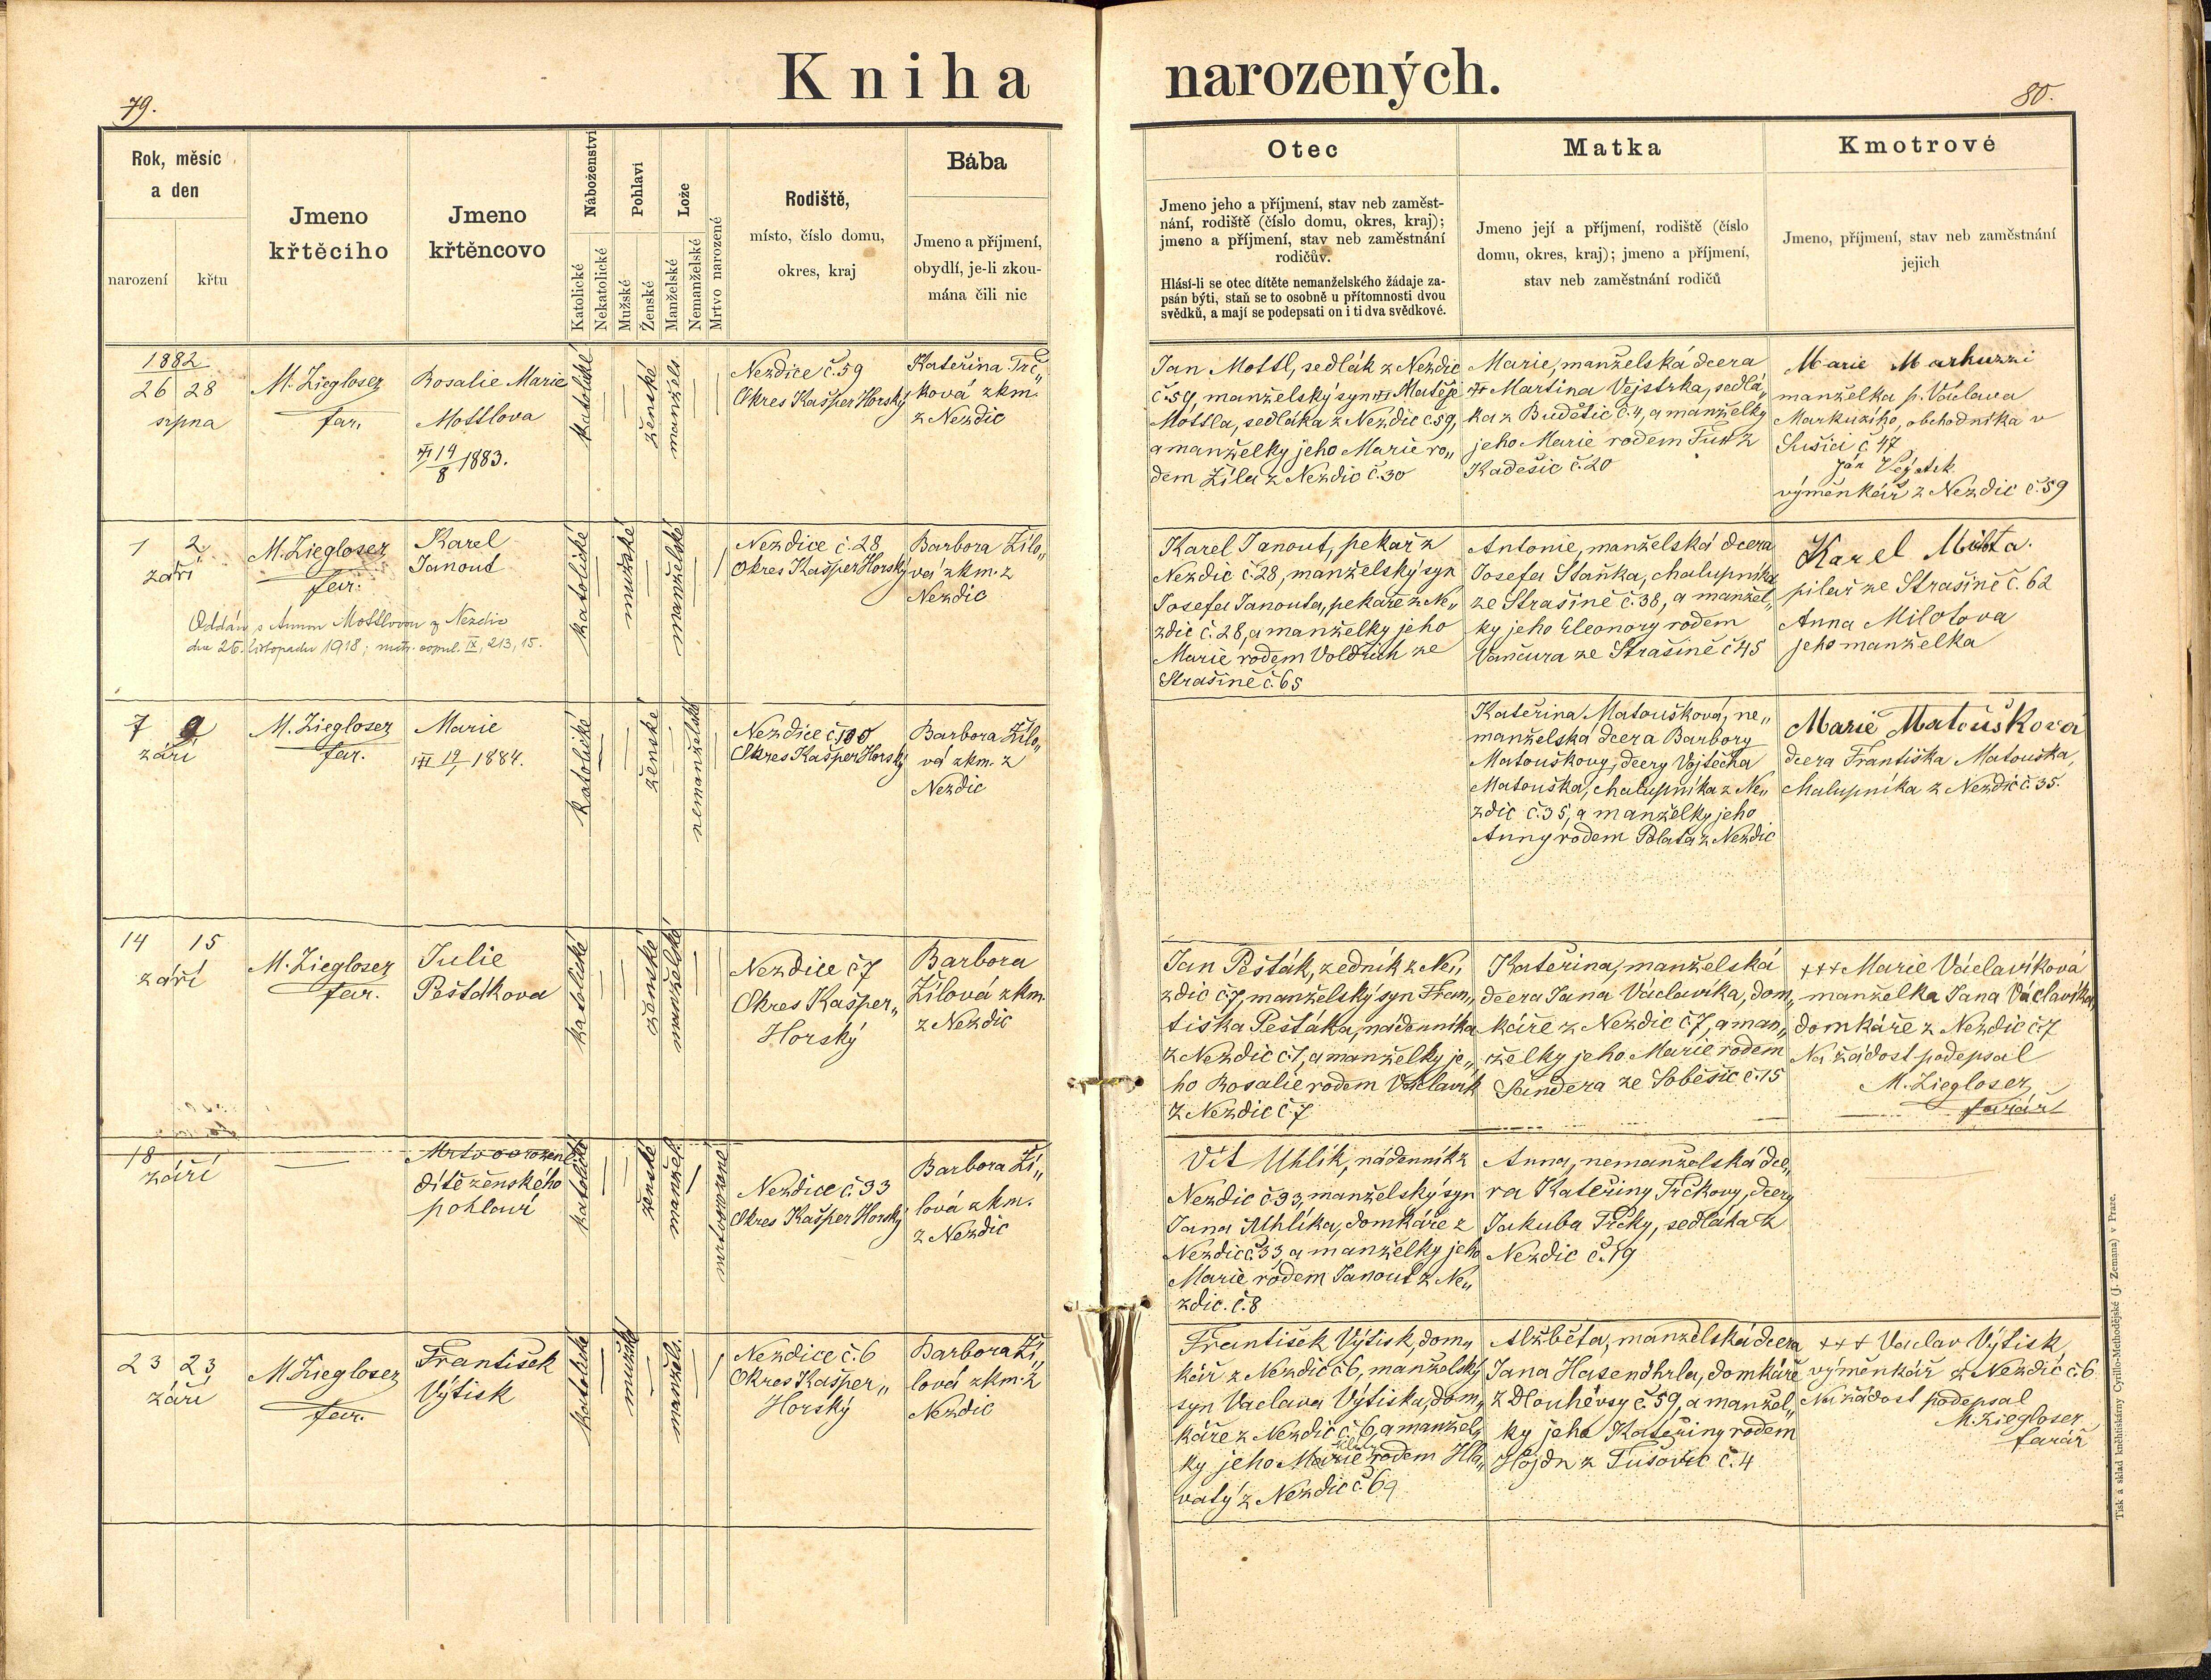 79.
Kniha
Rok, měsíc
a den
narození
křtu
Jmeno
křtěcího
Jmeno
křtěncovo
Náboženství
Katolické
Nekatolické
Pohlaví
Mužské
Ženské
Lože
Manželské
Nemanželské
Mrtvo narozené
Rodiště,
místo, číslo domu,
okres, kraj
Bába
Jmeno a příjmení,
obydlí, je-li zkou-
mána čili nic
1882
26 28
srpna
M. Ziegloser
far.
Rosalie Marie
Mottlova
14/8 1883.
katolické
ženské
manžels.
Nezdice č. 59
Okres Kašper Horský
Kateřina Trč„
ková zkm.
z Nezdic
1 2.
září
M. Ziegloser
far.
Karel
Janout
Oddán s Annou Mottlovou z Nezdic
dne 26. listopadu 1918; matr. copul. IX, 213, 15.
katolické
mužské
manželské
Nezdice č. 28
Okres Kašper Horský
Barbora Žílo„
vá zkm. z
Nezdic
7 9
září
M. Ziegloser
far.
Marie
1884.
katolické
ženské
nemanželské
Nezdice č. 100
Okres Kašper Horský
Barbora Žílo„
vá zkm. z
Nezdic
14 15
září
M. Ziegloser
far.
Julie
Pešťákova
katolické
ženské
manželské
Nezdice č 7
Okres Kašper„
Horský
Barbora
Žílová zkm.
z Nezdic
18
září
Mrtvorozené
dítě ženského
pohlaví
katolické
ženské
manžel.
mrtvorozené
Nezdice č. 33
Okres Kašper Horský
Barbora Ží„
lová zkm.
z Nezdic
23 23
září
M. Ziegloser
far.
František
Výtisk
katolické
mužské
manžels.
Nezdice č. 6
Okres Kašper„
Horský
Barbora Ží„
lová zkm. z
Nezdic
narozených.
80.
Otec
Jmeno jeho a příjmení, stav neb zaměst-
nání, rodiště (číslo domu, okres, kraj);
jmeno a příjmení, stav neb zaměstnání
rodičův.
Hlásí-li se otec dítěte nemanželského žádaje za-
psán býti, staň se to osobně u přítomnosti dvou
svědků, a mají se podepsati on i ti dva svědkové.
Matka
Jmeno její a příjmení, rodiště (číslo
domu, okres, kraj); jmeno a příjmení,
stav neb zaměstnání rodičů
Kmotrové
Jmeno, příjmení, stav neb zaměstnání
jejich
Jan Mottl, sedlák z Nezdic
č. 59, manželský syn Matěje
Mottla, sedláka z Nezdic č. 59,
a manželky jeho Marie ro„
dem Žíla z Nezdic č. 30
Marie, manželská dcera
Martina Vejstrka, sedlá„
ka z Budětic č. 4, a manželky
jeho Marie rodem z
Kadešic č. 20
Marie Markuzzi
manželka p. Václava
Markuziho, obchodníka v
Sušici č 47
Ján
výměnkář z Nezdic č. 59
Karel Janout, pekař z
Nezdic č. 28, manželský syn
Josefa Janouta, pekaře z Ne„
zdic č. 28, a manželky jeho
Marie rodem Voldřich ze
Strašině č. 65
Antonie, manželská dcera
Josefa Staňka, chalupníka
ze Strašině č. 38, a manžel„
ky jeho Eleonory rodem
Vančura ze Strašině č 45
Karel Milota.
pilař ze Strašině č. 62
Anna Milotova
jeho manželka
Kateřina Matoušková, ne„
manželská dcera Barbory
Matouškovy, dcery Vojtěcha
Matouška, chalupníka z Ne„
zdic č. 35, a manželky jeho
Anny rodem Polata z Nezdic
Marie Matoušková
dcera Františka Matouška,
chalupníka z Nezdic č. 35.
Jan Pešťák, zedník z Ne„
zdic č. 7, manželský syn Fran„
tiška Pešťáka, nádenníka
z Nezdic č. 7, a manželky je„
ho Rosalie rodem Václavík
z Nezdic č 7
Kateřina, manželská
dcera Jana Václavíka, dom„
káře z Nezdic č. 7, a man„
želky jeho Marie rodem
Šandera ze Soběšic č. 15
+++ Marie Václavíková
manželka Jana Václavíka,
domkáře z Nezdic č. 7
Na žádost podepsal
M. Ziegloser,
farář
Vít Uhlík, nádenník z
Nezdic č 33, manželský syn
Jana Uhlíka, domkáře z
Nezdic č 33 a manželky jeho
Marie rodem Janout z Ne„
zdic. č. 8
Anna, nemanželská dce„
ra Kateřiny Trčkovy, dcery
Jakuba Trčky, sedláka z
Nezdic č. 19
František Výtisk, dom„
kář z Nezdic č 6, manželský
syn Václava Výtiska, dom„
káře z Nezdic č. 6, a manžel„
ky jeho Marie rodem Hla„
vatý z Nezdic č. 69
Alžběta, manželská dcera
Jana Hasenöhrla, domkáře
z Dlouhévsy č. 59, a manžel„
ky jeho Kateřiny rodem
Hojdn z Tušovic č. 4
+++ Václav Výtisk,
výměnkář z Nezdic č. 6
Na žádost podepsal
M. Ziegloser
farář
Tisk a sklad knihtiskárny Cyrillo-Methodějské (J. Zemana) v Praze.